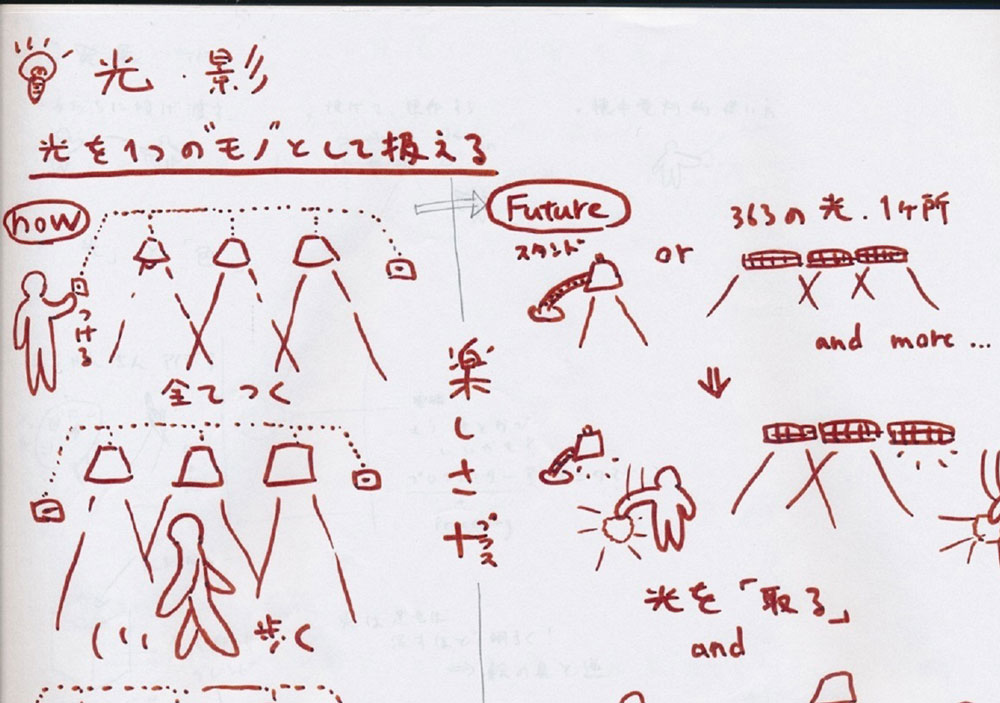 光・影
光を1つの"モノ"として扱える
now
つける
全てつく
歩く
楽しさ+プラス
Future
スタンド
or
363の光.1ヶ所
and more...
光を「取る」
and